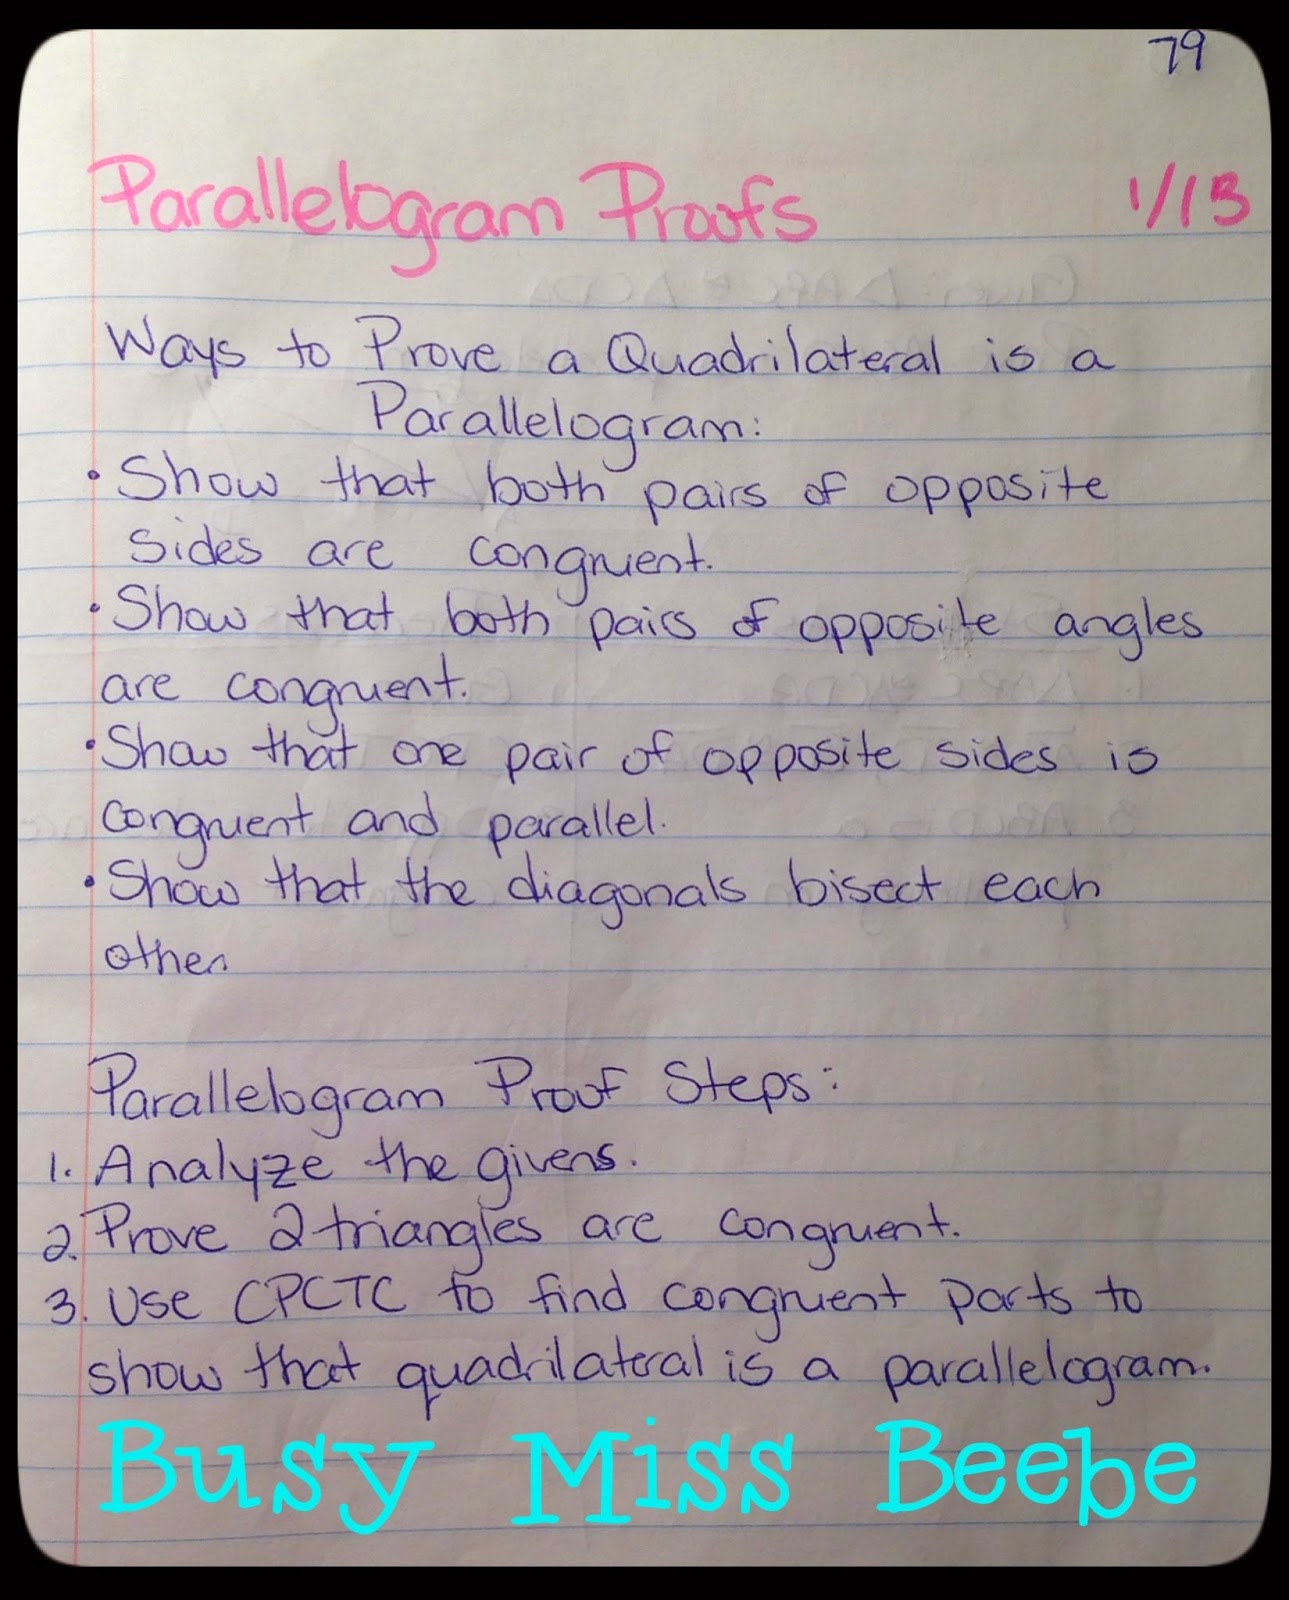 79
Parallelogram Proofs 1/13
Ways to Prove a Quadrilateral is a
Parallelogram:
• Show that both pairs of opposite
sides are congruent.
• Show that both pairs of opposite angles
are congruent.
• Show that one pair of opposite sides is
congruent and parallel.
• Show that the diagonals bisect each
other.
Parallelogram Proof Steps:
1. Analyze the givens.
2. Prove 2 triangles are congruent.
3. Use CPCTC to find congruent parts to
show that quadrilateral is a parallelogram.
Busy Miss Beebe